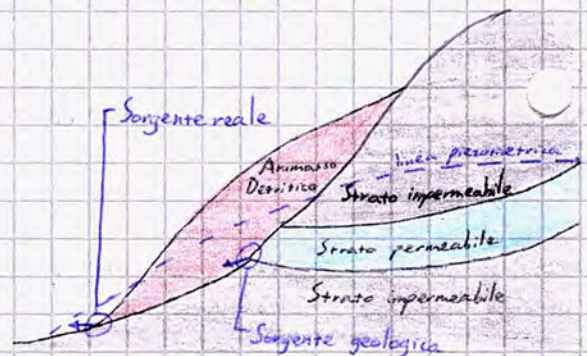 Sorgente reale
Ammasso
Detritico
linea piezometrica
Strato impermeabile
Strato permeabile
Strato impermeabile
Sorgente geologica